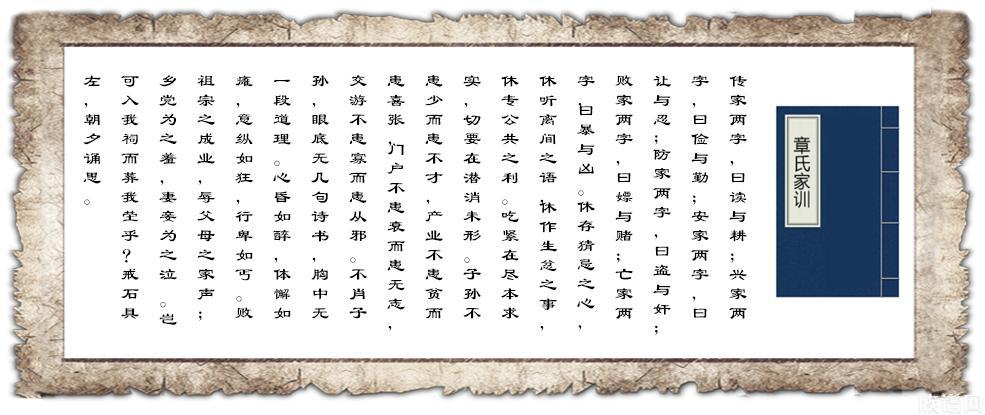 章氏家训
传家两字，曰读与耕；兴家两
字，曰俭与勤；安家两字，曰
让与忍；防家两字，曰盗与奸；
败家两字，曰嫖与赌；亡家两
字，曰暴与凶。休存猜忌之心，
休听离间之语，休作生忿之事，
休专公共之利。吃紧在尽本求
实，切要在潜消未形。子孙不
患少而患不才，产业不患贫而
患喜张，门户不患衰而患无志，
交游不患寡而患从邪。不肖子
孙，眼底无几句诗书，胸中无
一段道理。心昏如醉，体懈如
瘫，意纵如狂，行卑如丐。败
祖宗之成业，辱父母之家声；
乡党为之羞，妻妾为之泣。岂
可入我祠而葬我茔乎？戒石具
左，朝夕诵思。